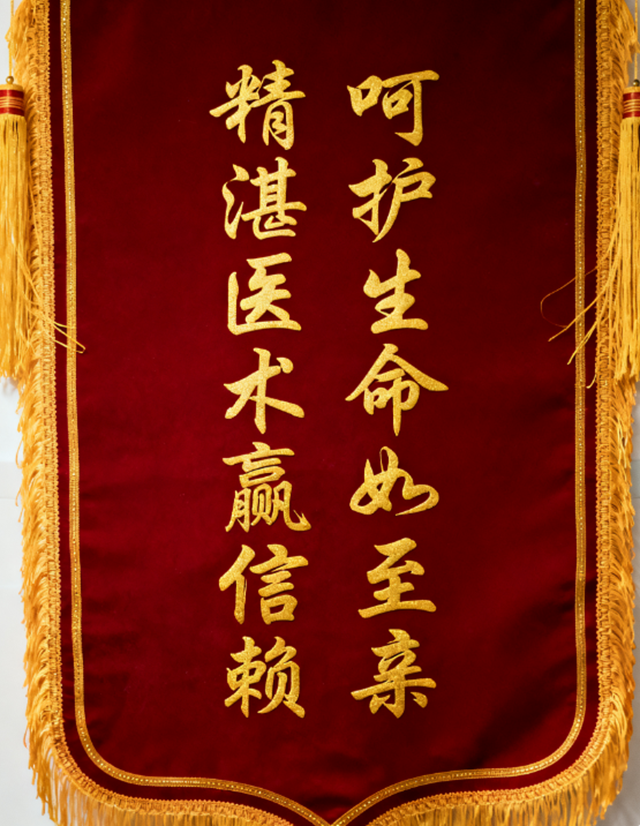 呵护生命如至亲
精湛医术赢信赖